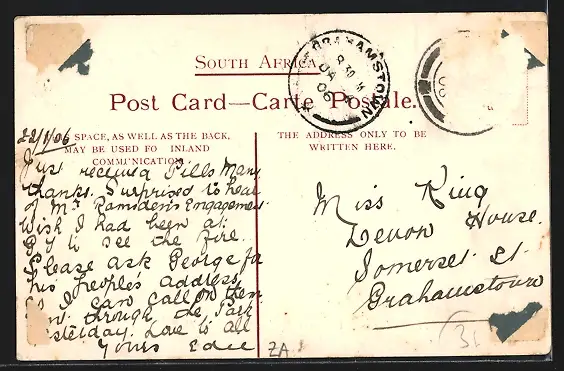 South Africa.
Post Card—Carte Postale.
SPACE, AS WELL AS THE BACK,
MAY BE USED FO INLAND
COMMUNICATION.
THE ADDRESS ONLY TO BE
WRITTEN HERE.
GRAHAMSTOWN
8 30
06
22/1/06
Just received Pills Many
thanks. Surprised to hear
of Mr Ramsden's Engagement
Wish I had been at
to see the fire.
Please ask George for
his people's address,
I can call on them
through the Park
yesterday. Love to all
Yours Edie
Miss King
Devon House.
Somerset St
Grahamstown
31
ZA